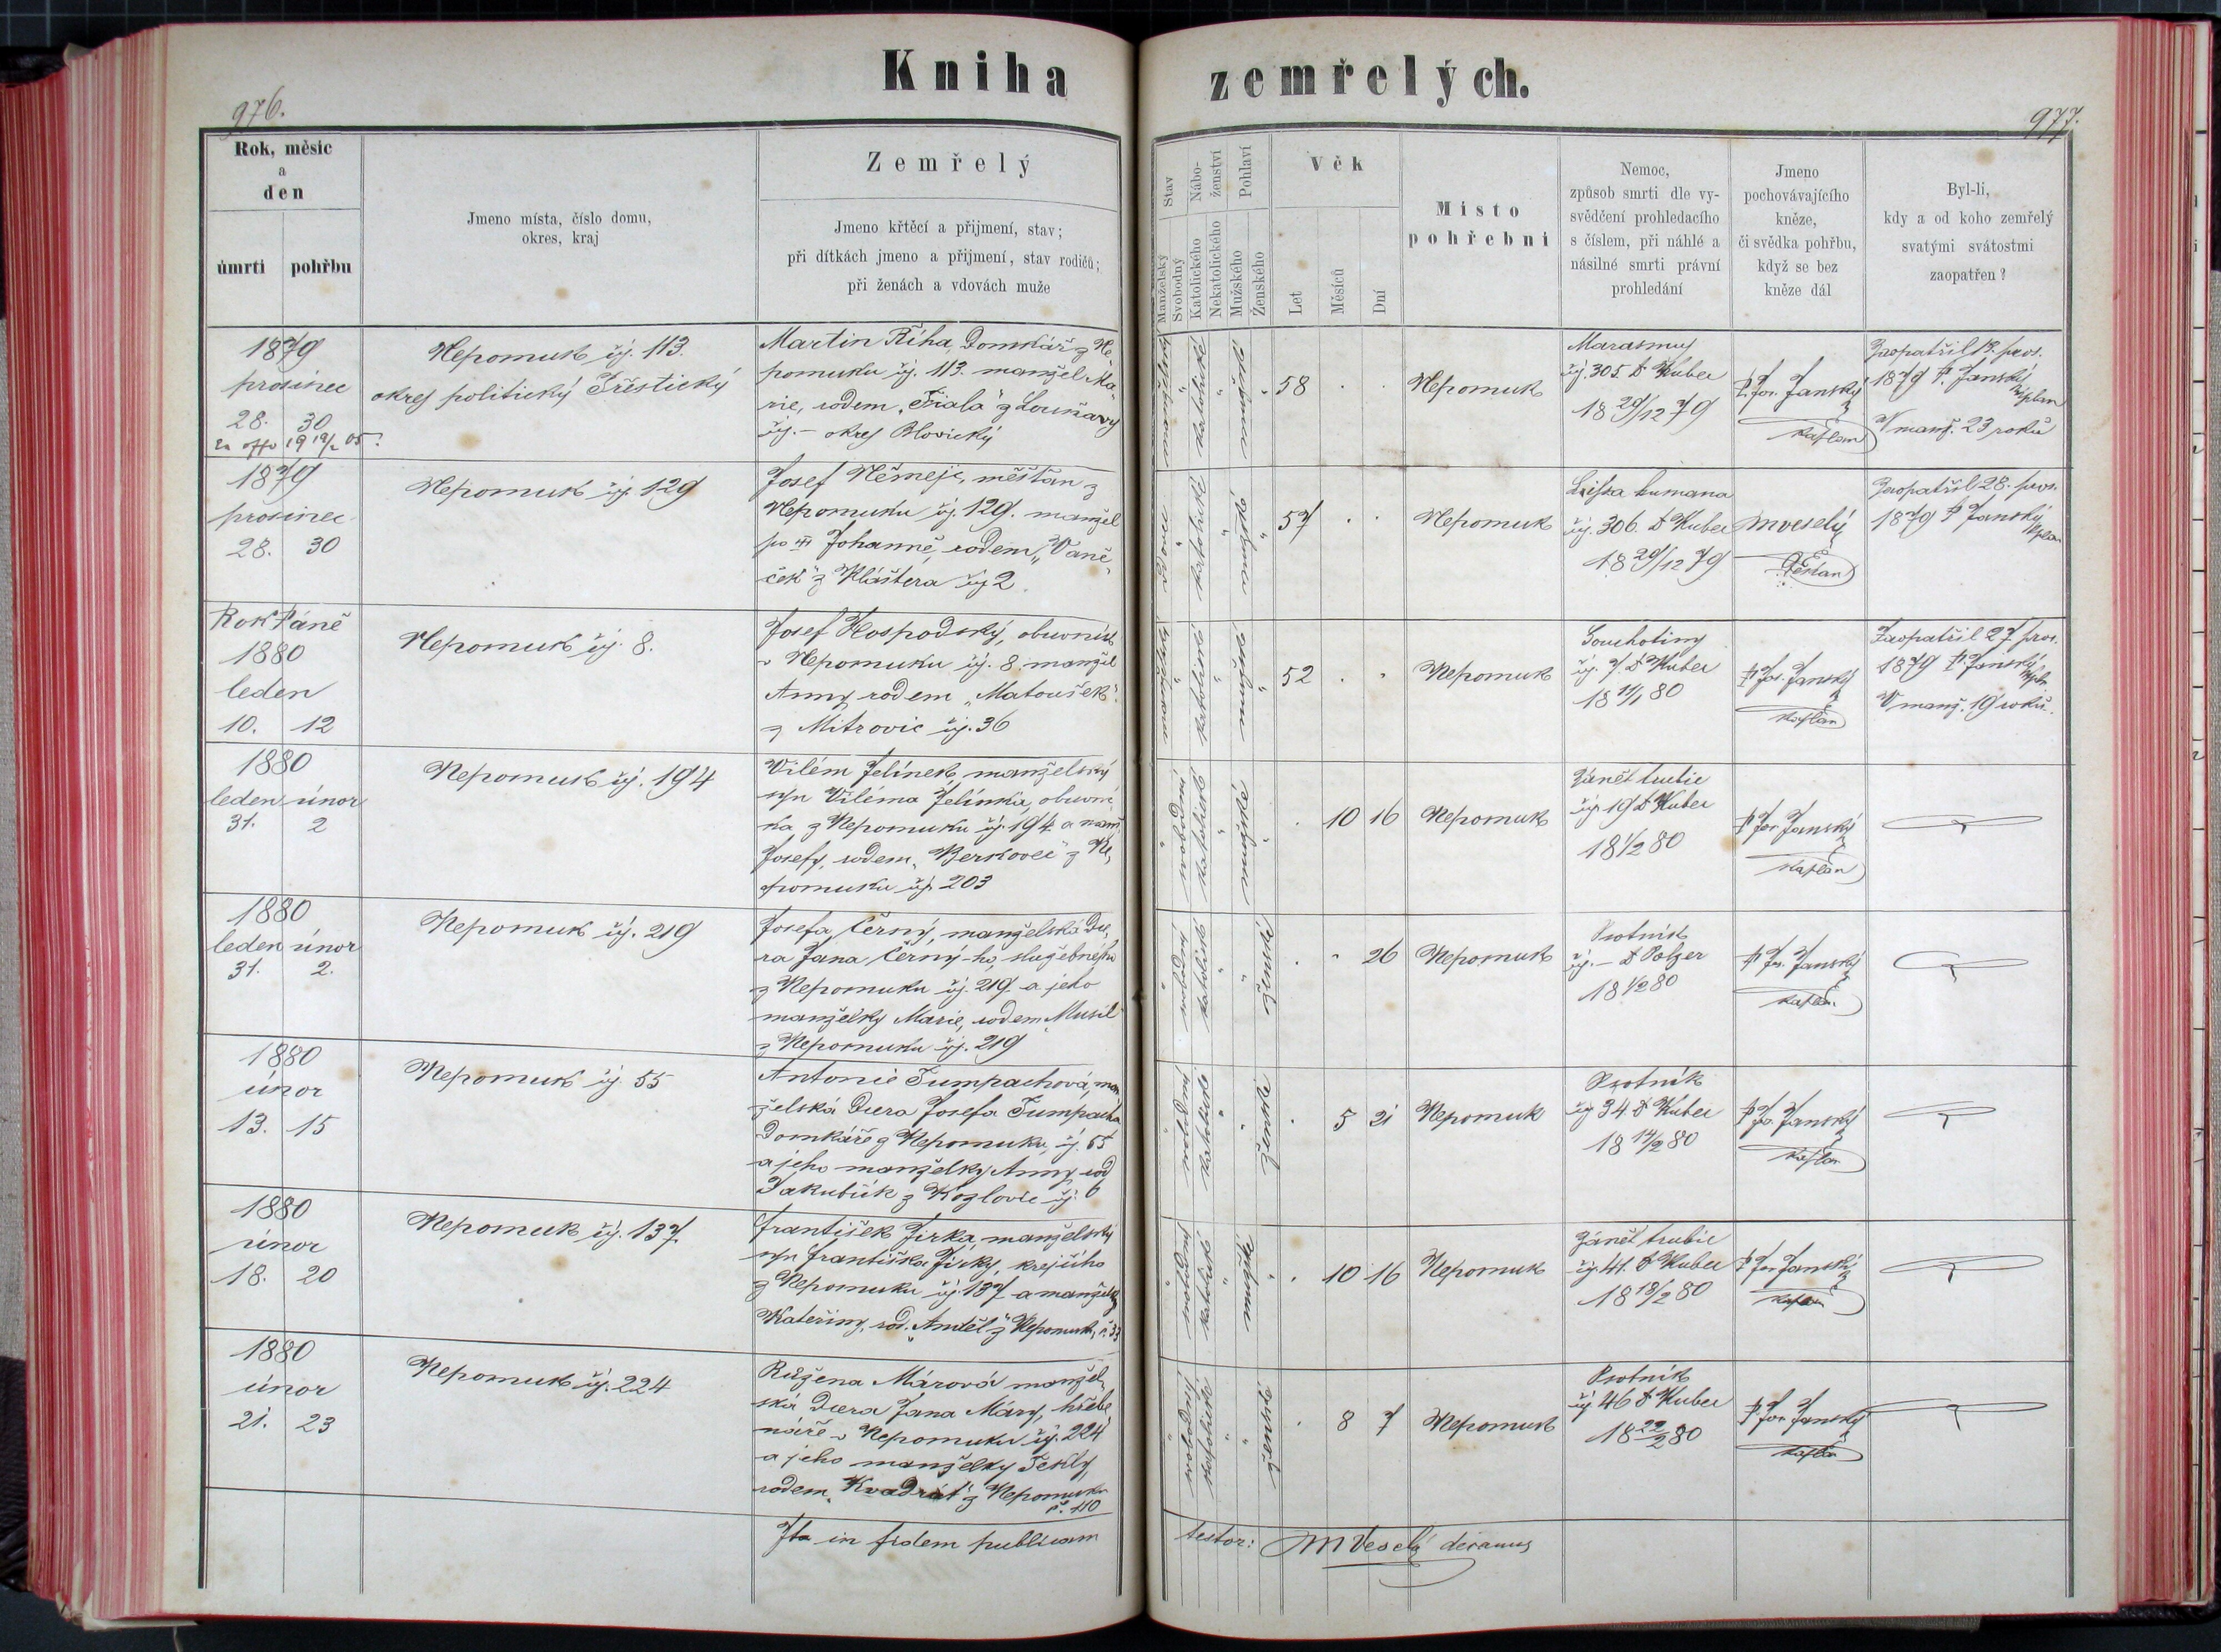 Kniha zemřelých.
976.
977.
Rok, měsíc
a
den
úmrti
pohřbu
Jmeno místa, číslo domu,
okres, kraj
Zemřelý
Jmeno křtěcí a přijmení, stav;
při dítkách jmeno a přijmení, stav rodičů;
při ženách a vdovách muže
Stav
Manželský
Svobodný
Nábo-
ženství
Katolického
Nekatolického
Pohlaví
Mužského
Ženského
Věk
Let
Měsíců
Dní
Místo
pohřební
Nemoc,
způsob smrti dle vy-
svědčení prohledacího
s číslem, při náhlé a
násilné smrti právní
prohledání
Jmeno
pochovávajícího
kněze,
či svědka pohřbu,
když se bez
kněze dál
Byl-li,
kdy a od koho zemřelý
svatými svátostmi
zaopatřen?
1879
prosinec
28. 30
Ex offo 19 19/2 05.
Nepomuk čj. 113.
okres politický Přestický
Martin Říha, Domkář z Ne-
pomuku čj. 113. manžel Ma-
rie, rodem „Fiala" z Louňavy
čj. – okres Blovický
katolické
mužské
58 . .
Nepomuk
Marasmus
čj. 305. D. Huber
18 29/12 79
P. Jos. Janský
kaplan
Zaopatřil 18. pros.
1879 P. Janský
kaplan
V manž. 23 roků
1879
prosinec
28. 30
Nepomuk čj. 129
Josef Němejc, měšťan z
Nepomuku čj. 129. manžel
po III Johanně, rodem „Vaně-
ček" z Kláštera čj 2.
katolické
mužské
57 . .
Nepomuk
humana
čj. 306. D. Huber
18 29/12 79
M Veselý
Děkan
Zaopatřil 28. pros.
1879 P. Janský
kaplan
Rok Páně
1880
leden
10. 12
Nepomuk čj. 8.
Josef Hospodský, obuvník
v Nepomuku čj. 8. manžel
Anny rodem „Matoušek"
z Mitrovic čj. 36
katolické
mužské
52 . .
Nepomuk
Souchotiny
čj. 7 D. Huber
18 11/1 80
P. Jos. Janský
kaplan
Zaopatřil 27. pros.
1879 P. Janský
kapl.
V manž. 19 roků.
1880
leden únor
31. 2
Nepomuk čj. 194
Vilém Jelínek, manželský
syn Viléma Jelínka, obuvní-
ka z Nepomuku čj. 194 a manž.
Josefy, rodem „Berkovec" z Ne-
pomuku čj. 203
svobodný
katolické
mužské
. 10 16
Nepomuk
Zánět trubic
čj. 19 D. Huber
18 1/2 80
P. Jos. Janský
kaplan
1880
leden únor
31. 2.
Nepomuk čj. 219
Josefa Černý, manželská Dce-
ra Jana Černý-ho, služebného
z Nepomuku čj. 219. a jeho
manželky Marie, rodem „Musil"
z Nepomuku čj. 219
svobodný
katolické
ženské
. . 26
Nepomuk
Psotník
čj. – D. Polzer
18 1/2 80
P. Jos. Janský
kaplan
1880
únor
13. 15
Nepomuk čj. 55
Antonie Tumpachová, man-
želská Dcera Josefa Tumpacha
Domkáře z Nepomuku, čj. 55
a jeho manželky Anny, rod
Jakubčik z Kozlovic čj. 6
svobodný
katolické
ženské
. 5 21
Nepomuk
Psotník
čj 34. D. Huber
18 14/2 80
P. Jos. Janský
kaplan
1880
únor
18. 20
Nepomuk čj. 137
František Jirka, manželský
syn Františka Jirky, krejčího
z Nepomuku čj. 137 a manželky
Kateřiny, rod. „Anděl" z Nepomuk, č. 33
svobodný
katolické
mužské
. 10 16
Nepomuk
Zánět trubic
čj. 41. D. Huber
18 18/2 80
P. Jos Janský
kaplan
1880
únor
21. 23
Nepomuk čj. 224
Růžena Márová manžel-
ská Dcera Jana Máry, hřebe-
náře v Nepomuku čj. 224
a jeho manželky Tekly,
rodem „Kvadrát" z Nepomuku
č. 110
svobodný
katolické
ženské
. 8 7
Nepomuk
Psotník
čj 46 D. Huber
18 22/2 80
P. Jos. Janský
kaplan
Ita in fidem publicam
testor: M Veselý decanus